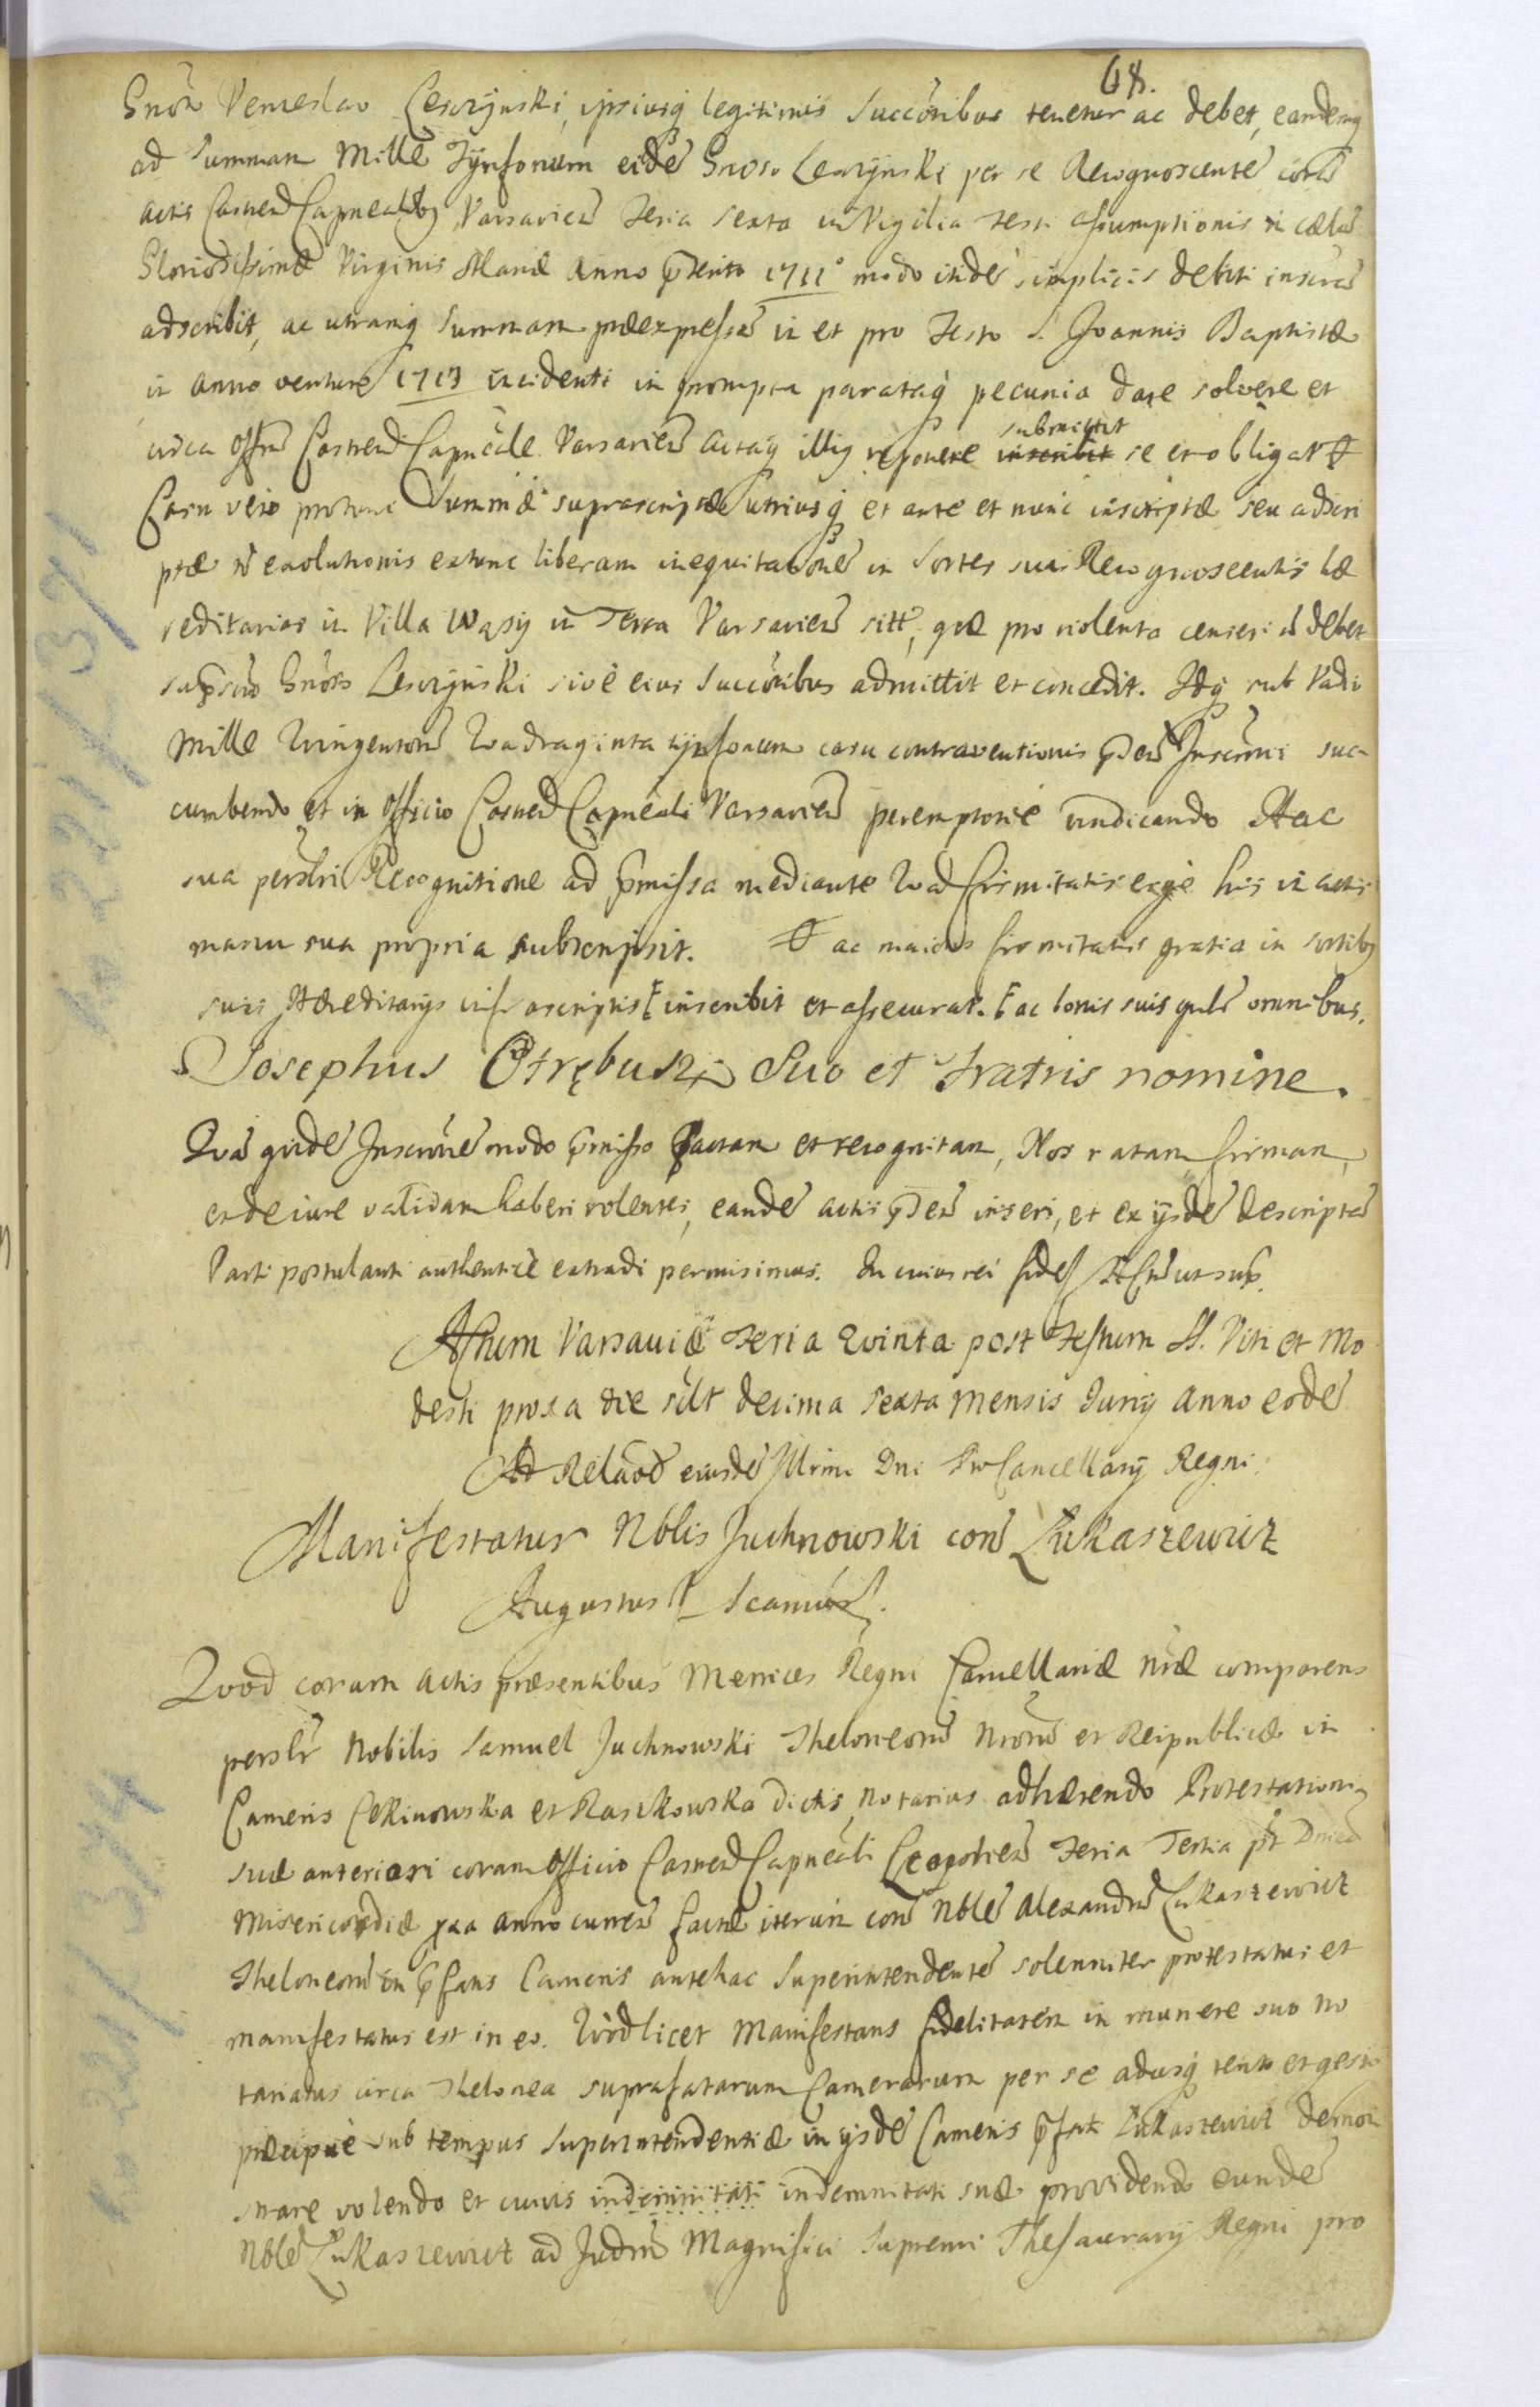 68.
Gnõso Venceslao Lesczÿnski, ipsiusq legitimis Succõribus tenetur ac debet, eandemq
ad Summam Mille Tÿnfonum eidẽ Gnoso Lesczÿnski per se Recognoscentẽ corã
actis Castren Capnealibq Varsavien Feria Sexta in Vigilia Festi Assumptionis in cœlũ
Gloriosissimæ Virginis Mariæ Anno p̃senti 1711° modo itidẽ simplicis debiti inscrib
adscribit, ac utramq Summam præexpressã in et pro Festo S. Joannis Baptistæ
in anno venturo 1713 incidenti in prompta parataq pecunia dare solvere et
circa Offm Castren Capneale Varsavien actaq illiq reponere inscribit submittit se et obligat
Casu vero protunc Summæ suprascriptæ utriusq et ante et nunc inscriptæ seu adscri
ptæ ñ exolutionis extunc liberam inequitationẽ in Sortes suas Recognoscentis hæ
reditarias in Villa Wąsÿ in Terra Varsavien sitt, quæ pro violenta censeri ñ debet
sup̃scto Gnõso Lesczÿnski sive eius Succõribus admittit et concedit. Idq sub Vadio
Mille Quingentorũ Quadraginta tÿnfonum casu contraventionis p̃sen Inscrõni suc-
cumbendo et in Officio Castren Capneali Varsavien peremptorie vindicando Hac
sua persõlri Recognitione ad p̃missa mediante Quã firmitatis ergò his in actis
manu sua propria subscripsit. ac maioris firmitatis gratia in sortibq
suis Hæreditarijs infrascriptis inscribit et assecurat. ac bonis suis gnlr omnibus.
Josephus Otrębuski Suo et Fratris nomine.
Quã quidẽ Inscrõnẽ modo p̃misso factam et recognitam, Nos ratam firmam,
et de iure validam haberi volentes, eandẽ actis p̃sen inseri, et ex ijsdẽ descriptã
Parti postulanti authenticè extradi permisimus. In cuius rei fidẽ ut sup̃.
Actum Varsaviæ Feria Quinta post Festum SS. Viti et Mo
desti proxa die scilt decima sexta Mensis Junij Anno eodẽ
Ad Relaõẽ eiusdẽ Illrmi Dni ProCancellarij Regni.
Manifestatur Nblis Juchnowski con Łukaszewicz
Augustus
Quod coram Actis præsentibus Metrices Regni Cancellariæ nræ comparens
perslr Nobilis Samuel Juchnowski Theloneorũ Nrorũ et Reipublicæ in
Cameris Cekinowska et Raszkowska dictis Notarius adhærendo Protestationi
suæ anteriori coram Officio Castren Capneali Feria Tertia pt Dnicã
Misericordiæ pxa anno curren factæ iterum con Nblẽ Alexandrũ Łukaszewicz
Theloneorũ in p̃fatis Cameris antehac Superintendentẽ solenniter protestatus et
manifestatus est in eo. Quòd licet Manifestans fidelitatem in munere suo No
tariatus circa Thelonea suprafatarum Camerarum per se adusq tento et gesto
præcipuè sub tempus Superintendentiæ in ijsdẽ Cameris p̃fati Łukaszewicz demon
strare volendo et cuius indemnitati indemnitati suæ providendo eundẽ
Nblẽ Łukaszewicz ad Magnifici Supremi Thesaurarij Regni pro